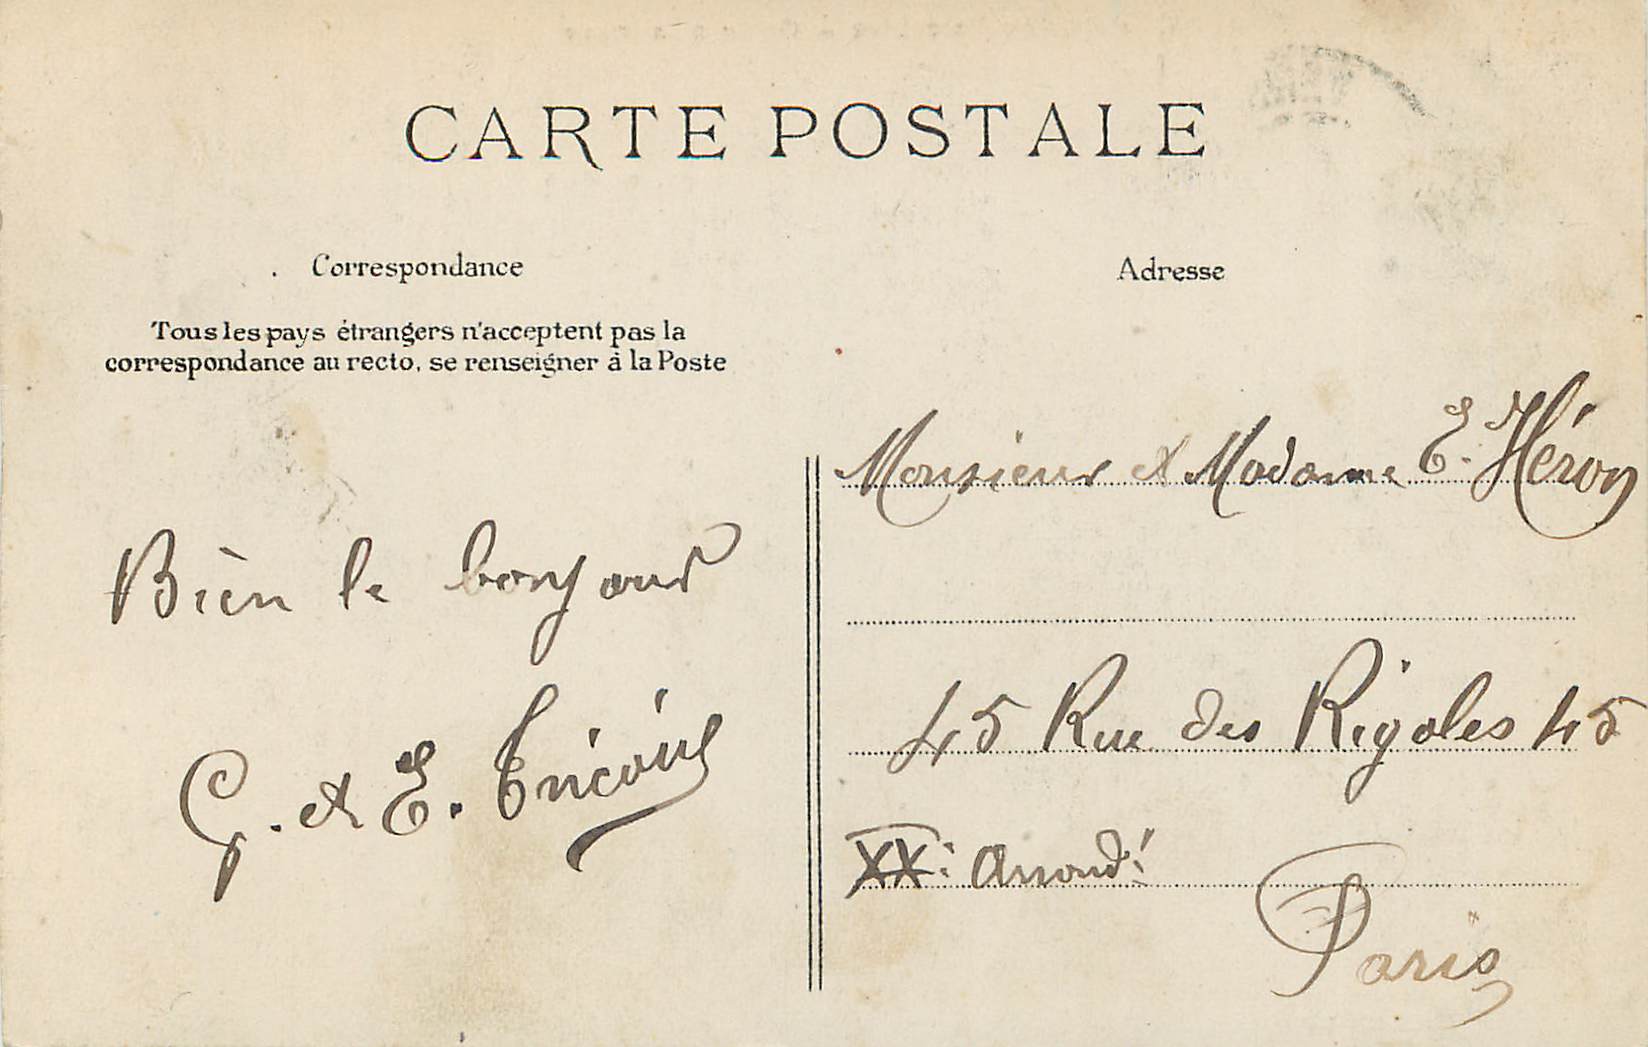 CARTE POSTALE
Correspondance
Tous les pays étrangers n'acceptent pas la
correspondance au recto, se renseigner à la Poste
Bien le bonjour
G. et E.
Adresse
Monsieur et Madame E. Héron
45 Rue des Rigoles 45
XXe Arrondt
Paris